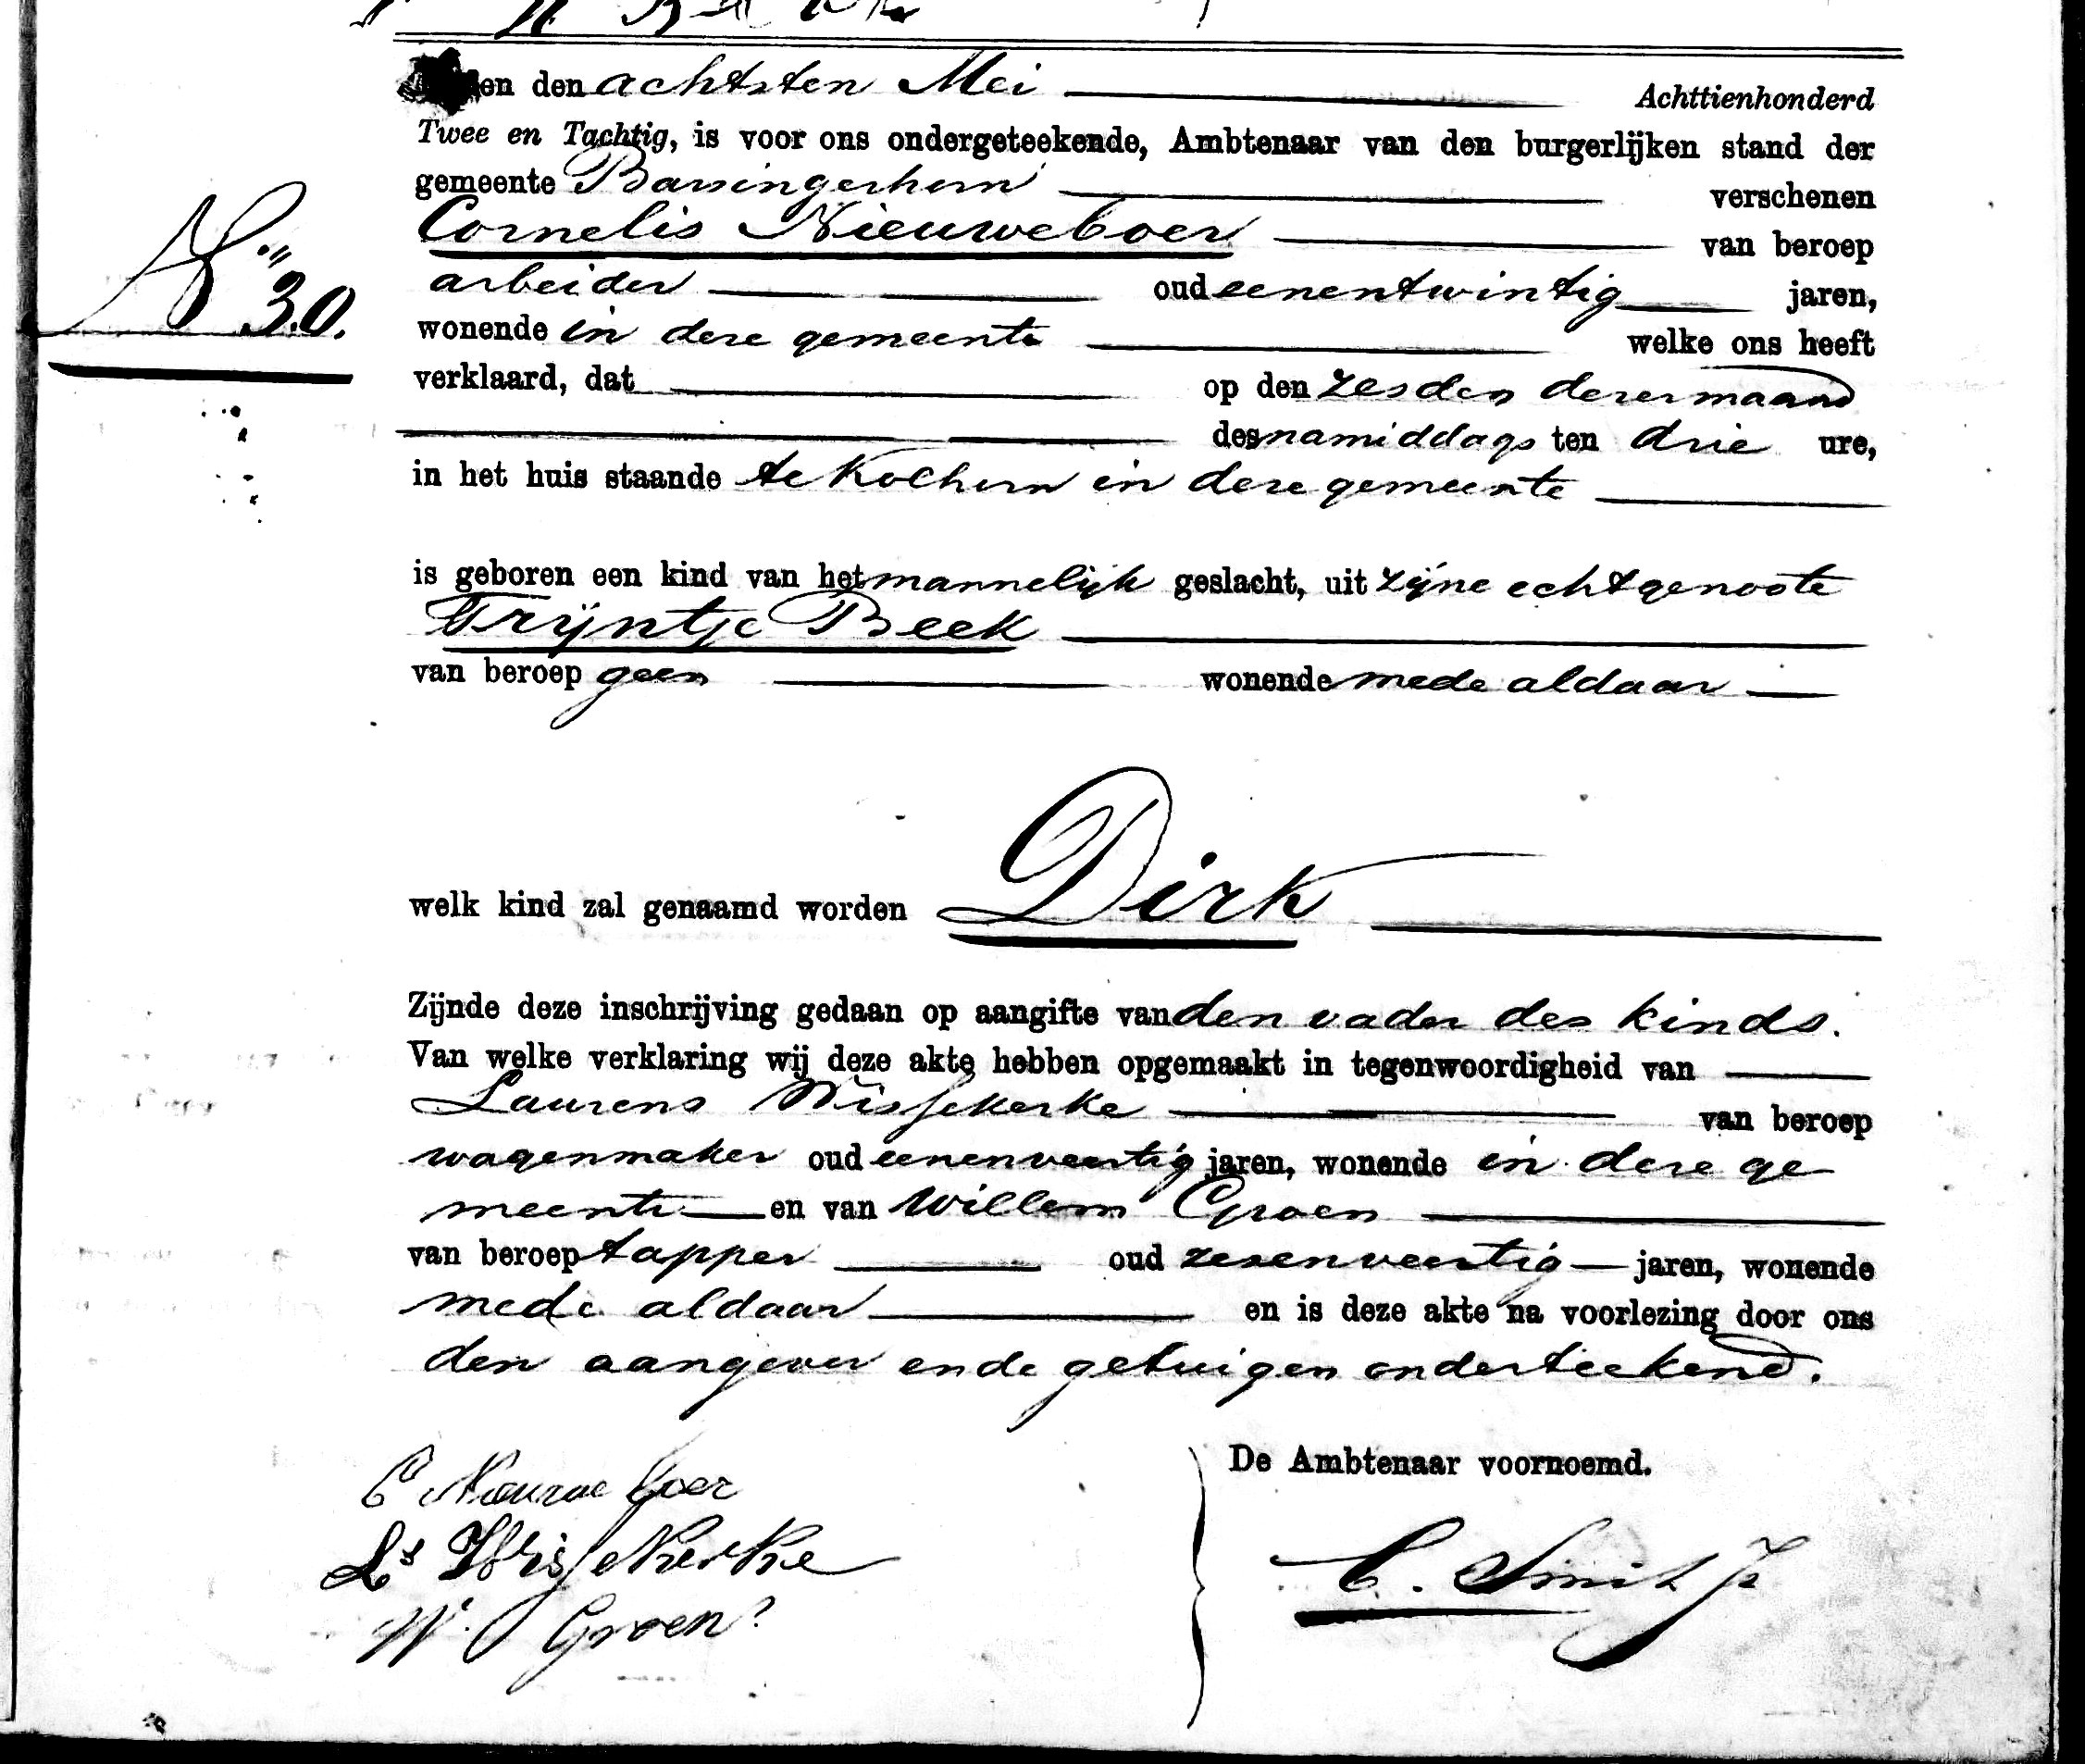 en den achtsten Mei Achttienhonderd
Twee en Tachtig, is voor ons ondergeteekende, Ambtenaar van den burgerlijken stand der
gemeente Barsingerhorn verschenen
Cornelis Nieuweboer van beroep
No 30.
arbeider oud eenentwintig jaren,
wonende in deze gemeente welke ons heeft
verklaard, dat op den zesden dezer maand
des namiddags ten drie ure,
in het huis staande te Kolhorn in deze gemeente
is geboren een kind van het mannelijk geslacht, uit zijne echtgenoote
Trijntje Beek
van beroep geen wonende mede aldaar
welk kind zal genaamd worden Dirk
Zijnde deze inschrijving gedaan op aangifte van den vader des kinds.
Van welke verklaring wij deze akte hebben opgemaakt in tegenwoordigheid van
Laurens Wissekerke van beroep
wagenmaker oud eenenveertig jaren, wonende in deze ge
meente en van Willem Groen
van beroep tapper oud zesenveertig jaren, wonende
mede aldaar en is deze akte na voorlezing door ons
den aangever en de getuigen onderteekend.
De Ambtenaar voornoemd.
C Nieuwe boer
Ls Wissekerke
W. Groen
C. Smit Jz